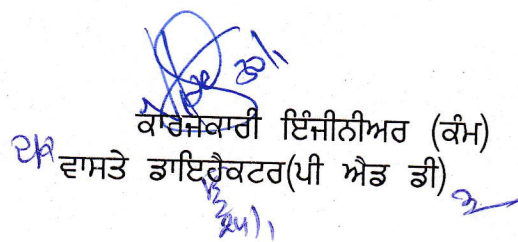 ਕਾਰਜਕਾਰੀ ਇੰਜੀਨੀਅਰ (ਕੰਮ)
ਵਾਸਤੇ ਡਾਇਰੈਕਟਰ(ਪੀ ਐਡ ਡੀ)